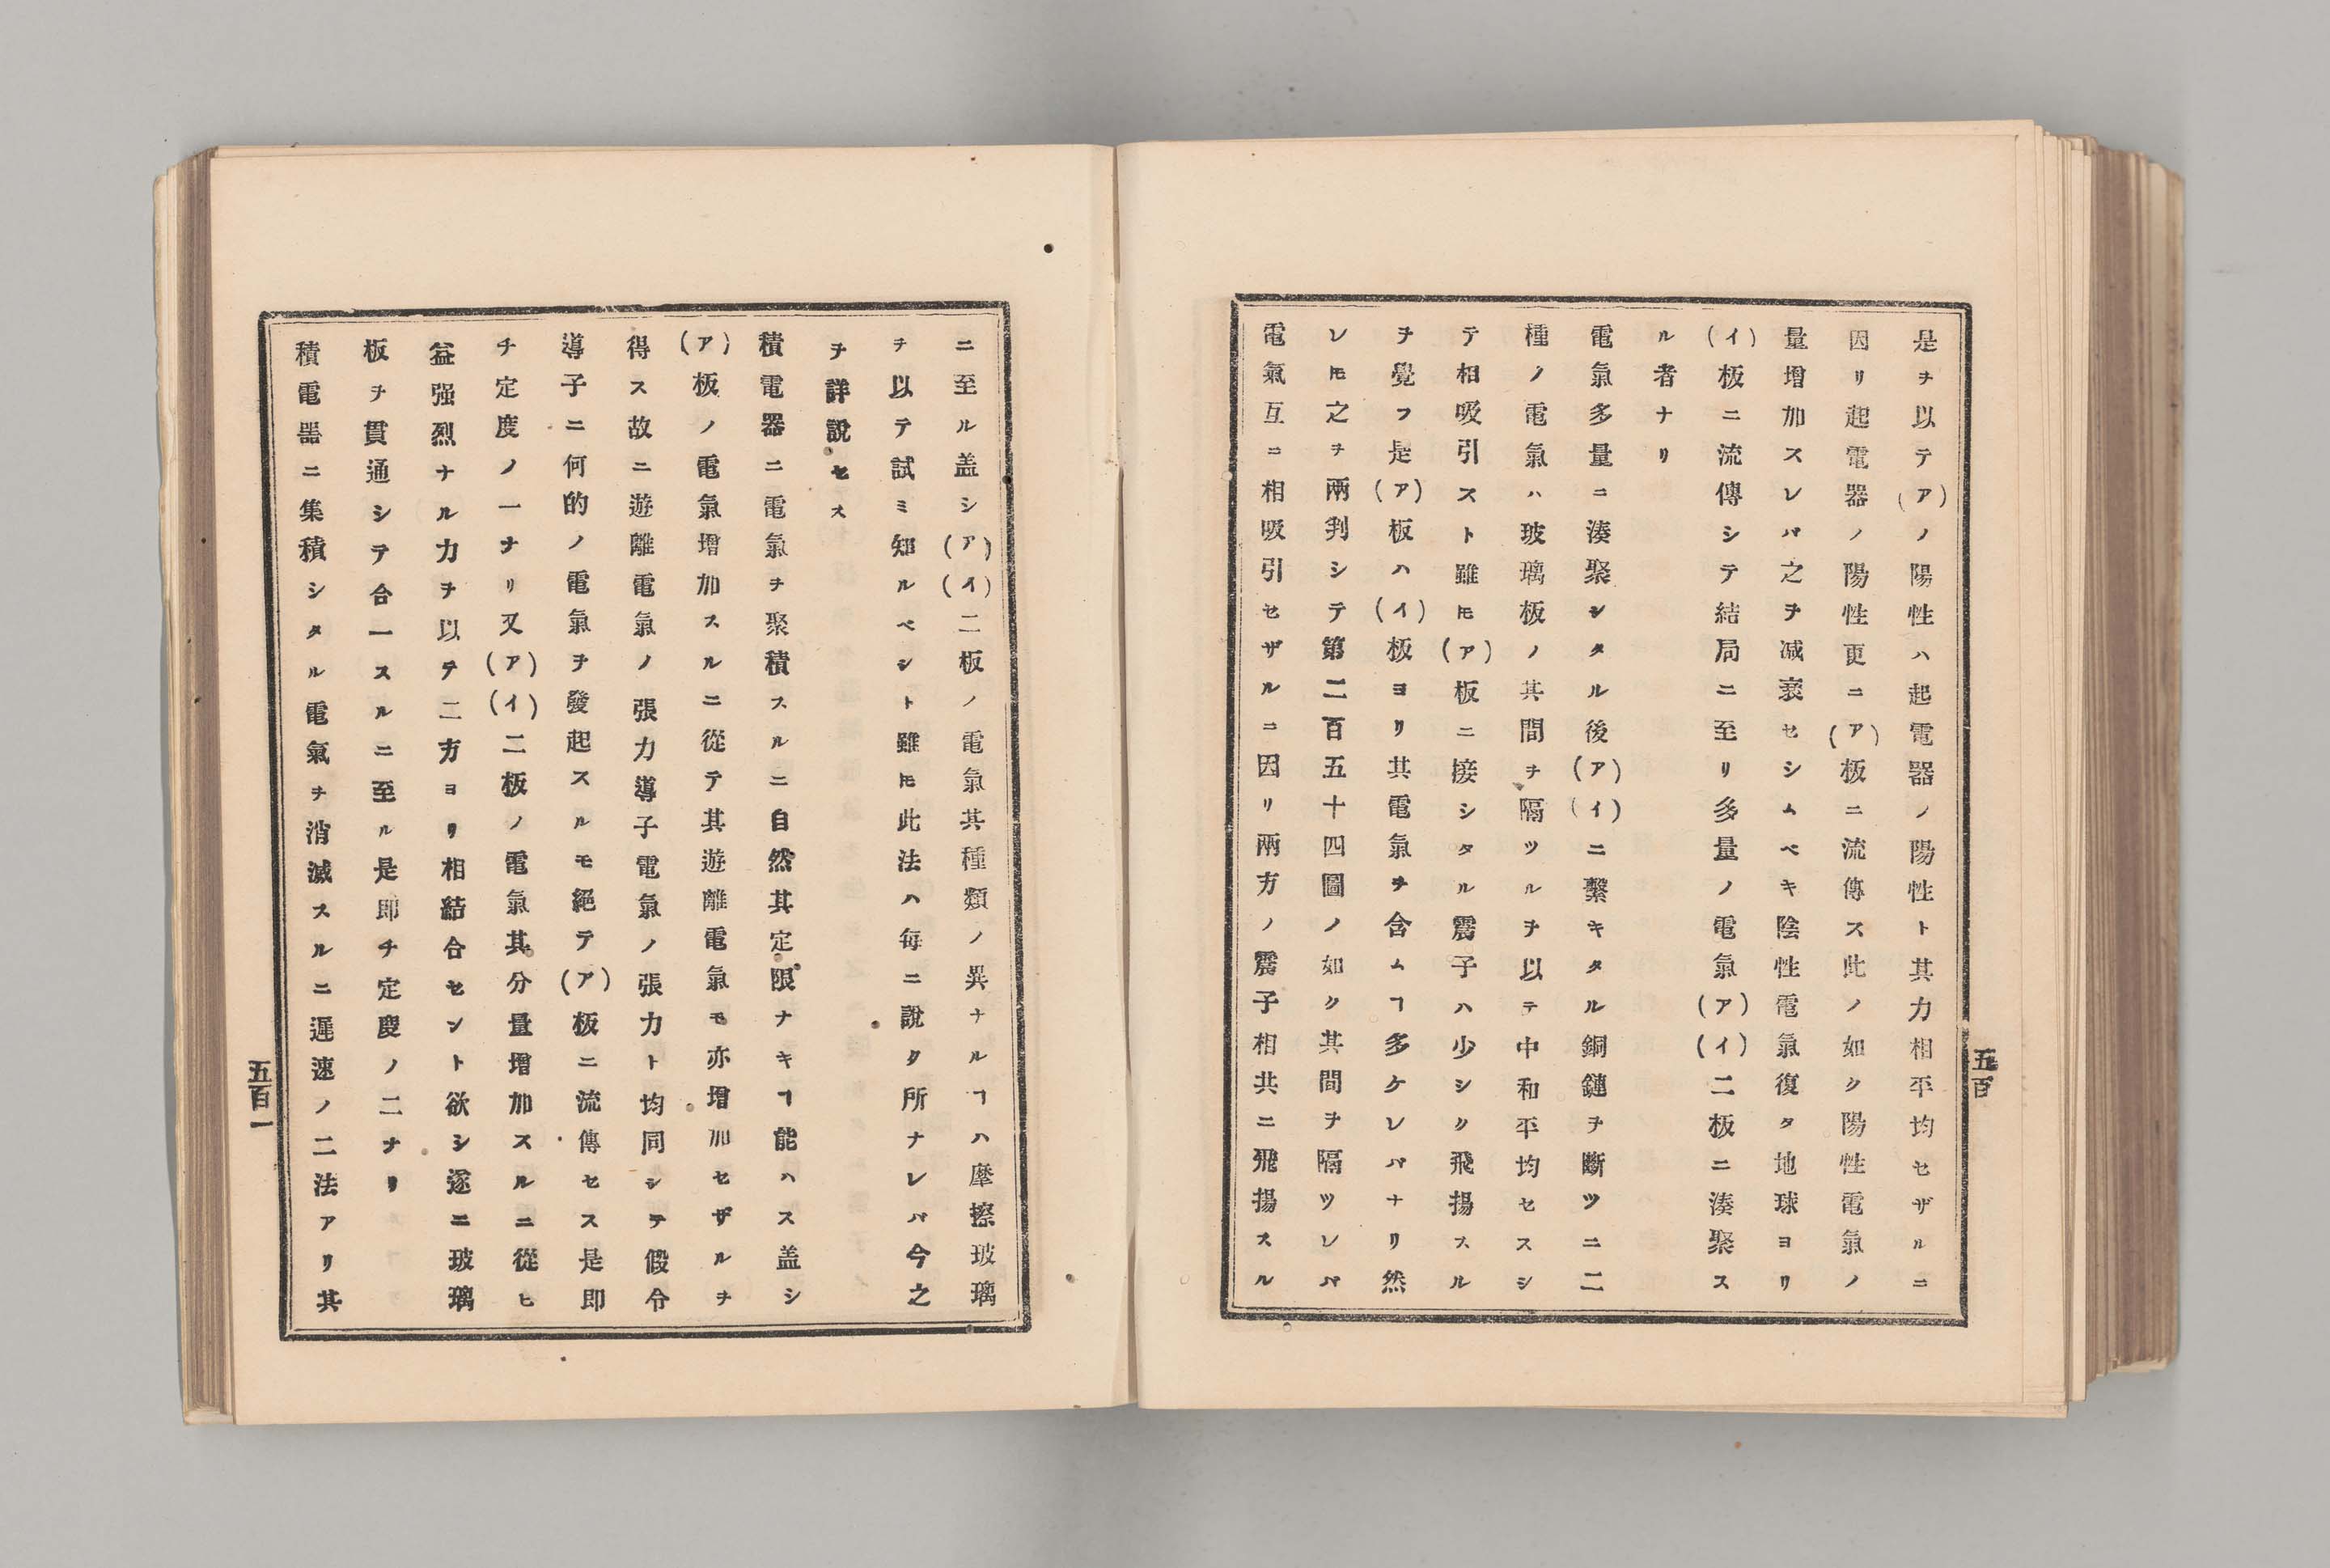 是ヲ以テ(ア)ノ陽性ハ起電器ノ陽性ト其力相平均セザルニ
因リ起電器ノ陽性更ニ(ア)板ニ流傳ス此ノ如ク陽性電氣ノ
量增加スレバ之ヲ减衰セシムベキ陰性電氣復タ地球ヨリ
(イ)板ニ流傳シテ結局ニ至リ多量ノ電氣(ア)(イ)二板ニ湊聚ス
ル者ナリ
電氣多量ニ湊聚シタル後(ア)(イ)ニ繫キタル銅鏈ヲ斷ツニ二
種ノ電氣ハ玻璃板ノ其間ヲ隔ツルヲ以テ中和平均セスシ
テ相吸引スト雖𪜈(ア)板ニ接シタル震子ハ少シク飛揚スル
ヲ覺フ是(ア)板ハ(イ)板ヨリ其電氣ヲ含ムヿ多ケレバナリ然
レ𪜈之ヲ兩判シテ第二百五十四圖ノ如ク其間ヲ隔ツレバ
電氣互ニ相吸引セザルニ因リ兩方ノ震子相共ニ飛揚スル
五百
ニ至ル盖シ(ア)(イ)二板ノ電氣其種類ノ異ナルヿハ摩擦玻璃
ヲ以テ試ミ知ルベシト雖𪜈此法ハ每ニ說ク所ナレバ今之
ヲ詳說セス
積電器ニ電氣ヲ聚積スルニ自然其定限ナキヿ能ハス盖シ
(ア)板ノ電氣增加スルニ從テ其遊離電氣モ亦增加セザルヲ
得ス故ニ遊離電氣ノ張力導子電氣ノ張力ト均同シテ假令
導子ニ何的ノ電氣ヲ發起スルモ絕テ(ア)板ニ流傳セス是即
チ定度ノ一ナリ又(ア)(イ)二板ノ電氣其分量增加スルニ從ヒ
益强烈ナル力ヲ以テ二方ヨリ相結合セント欲シ遂ニ玻璃
板ヲ貫通シテ合一スルニ至ル是即チ定慶ノ二ナリ
積電器ニ集積シタル電氣ヲ消滅スルニ遲速ノ二法アリ其
五百一